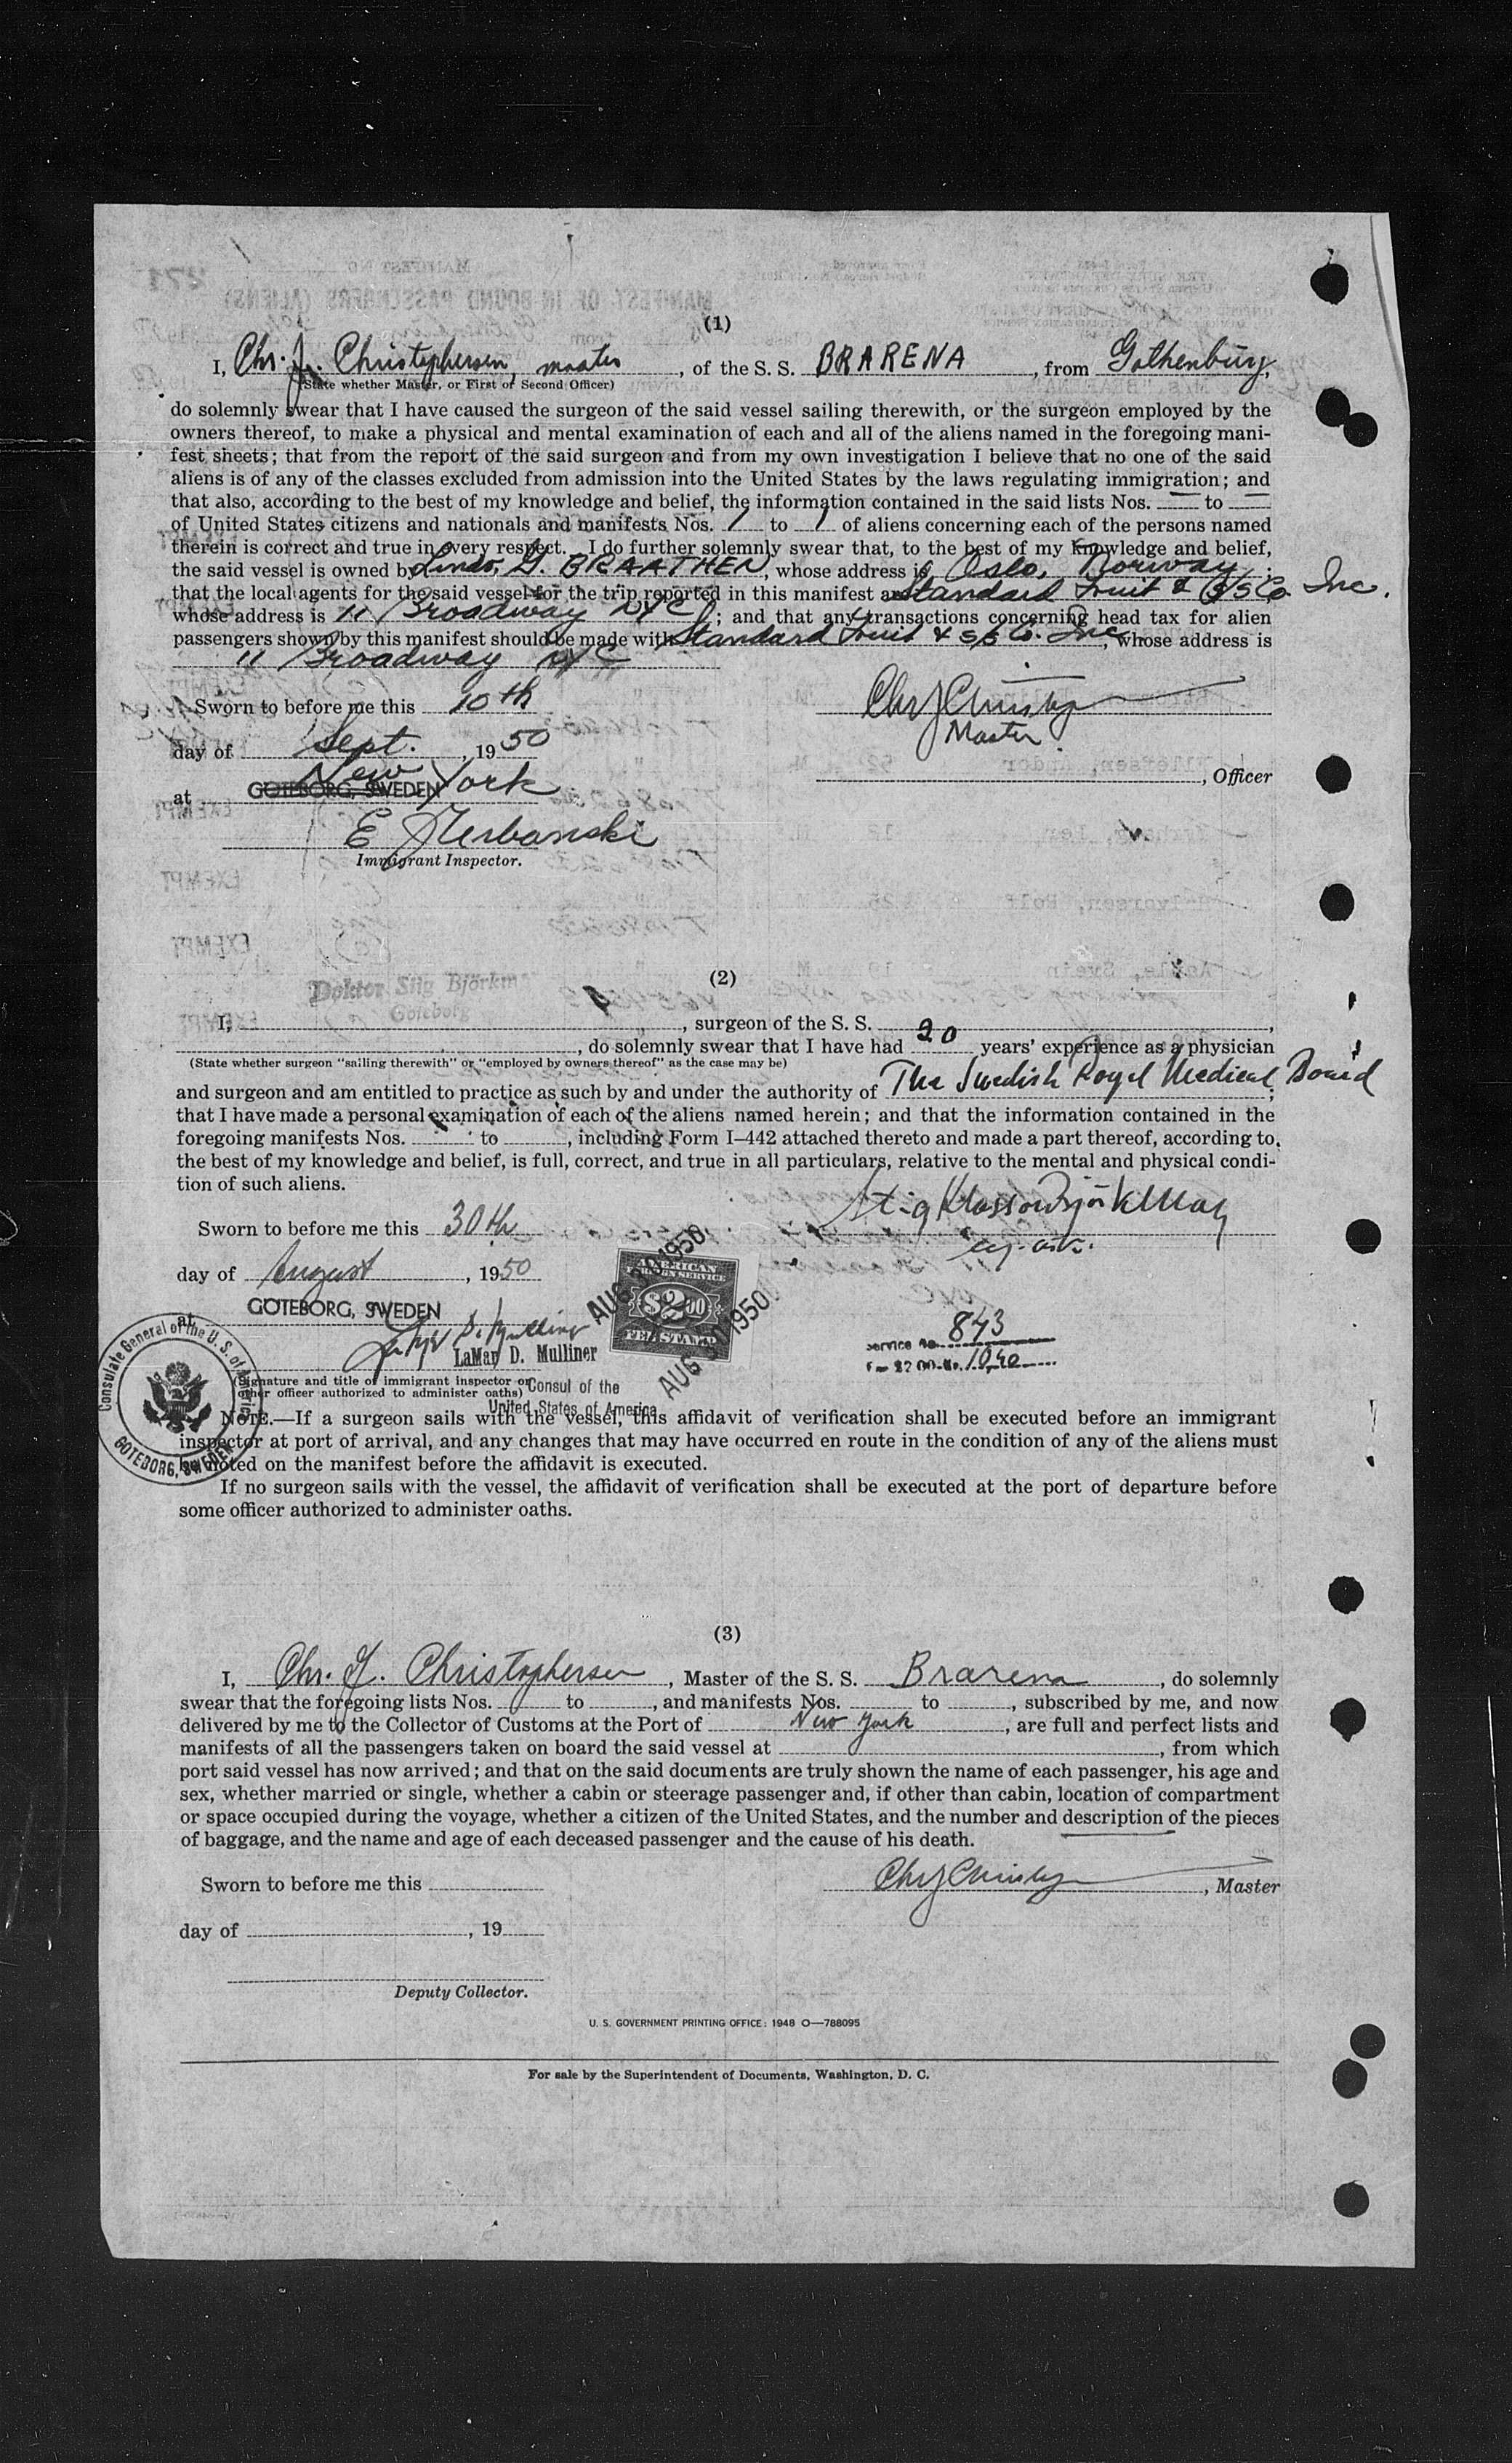 (1)
I, Chr. J. Christophersen, master, of the S. S. BRARENA, from Gothenburg,
(State whether Master, or First or Second Officer)
do solemnly swear that I have caused the surgeon of the said vessel sailing therewith, or the surgeon employed by the
owners thereof, to make a physical and mental examination of each and all of the aliens named in the foregoing mani-
fest sheets; that from the report of the said surgeon and from my own investigation I believe that no one of the said
aliens is of any of the classes excluded from admission into the United States by the laws regulating immigration; and
that also, according to the best of my knowledge and belief, the information contained in the said lists Nos. — to —
of United States citizens and nationals and manifests Nos. 1 to 1 of aliens concerning each of the persons named
therein is correct and true in every respect. I do further solemnly swear that, to the best of my knowledge and belief,
the said vessel is owned by BRAATHEN, whose address is Oslo, Norway;
that the local agents for the said vessel for the trip reported in this manifest are Standard Fruit & S/S Co Inc.
whose address is 11 Broadway NYC; and that any transactions concerning head tax for alien
passengers shown by this manifest should be made with Standard Fruit & S/S Co. Inc., whose address is
11 Broadway NYC
Sworn to before me this 10th
day of Sept., 1950
at GOTEBORG, SWEDEN New York
E Urbanski
Immigrant Inspector.
Chr J Christop
Master
, Officer
(2)
Doktor Stig Björkm
Göteborg
I, , surgeon of the S. S. ,
, do solemnly swear that I have had 20 years' experience as a physician
(State whether surgeon "sailing therewith" or "employed by owners thereof" as the case may be)
and surgeon and am entitled to practice as such by and under the authority of The Swedish Royal Medical Board;
that I have made a personal examination of each of the aliens named herein; and that the information contained in the
foregoing manifests Nos. to , including Form I–442 attached thereto and made a part thereof, according to
the best of my knowledge and belief, is full, correct, and true in all particulars, relative to the mental and physical condi-
tion of such aliens.
Stig Klasson Björkman
Sworn to before me this 30th
day of August, 1950
at GOTEBORG, SWEDEN
LaMar D. Mulliner
(Signature and title of immigrant inspector or
other officer authorized to administer oaths)
Consul of the
United States of America
Consulate General of the U. S. of America
GOTEBORG, SWEDEN
AMERICAN
FOREIGN SERVICE
$2.00
FEE STAMP
AUG 30 1950
AUG 30 1950
Service No. 843
1040
NOTE.—If a surgeon sails with the vessel, this affidavit of verification shall be executed before an immigrant
inspector at port of arrival, and any changes that may have occurred en route in the condition of any of the aliens must
be noted on the manifest before the affidavit is executed.
If no surgeon sails with the vessel, the affidavit of verification shall be executed at the port of departure before
some officer authorized to administer oaths.
(3)
I, Chr. J. Christophersen, Master of the S. S. Brarena, do solemnly
swear that the foregoing lists Nos. to , and manifests Nos. to , subscribed by me, and now
delivered by me to the Collector of Customs at the Port of New York, are full and perfect lists and
manifests of all the passengers taken on board the said vessel at , from which
port said vessel has now arrived; and that on the said documents are truly shown the name of each passenger, his age and
sex, whether married or single, whether a cabin or steerage passenger and, if other than cabin, location of compartment
or space occupied during the voyage, whether a citizen of the United States, and the number and description of the pieces
of baggage, and the name and age of each deceased passenger and the cause of his death.
Chr J Christop, Master
Sworn to before me this
day of , 19
Deputy Collector.
U. S. GOVERNMENT PRINTING OFFICE: 1948 O—788095
For sale by the Superintendent of Documents, Washington, D. C.